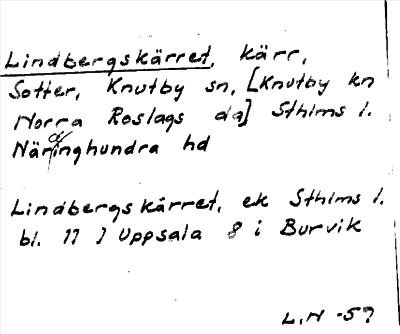 Lindbergskärret, kärr,
Sotter, Knutby sn, [Knutby kn
Norra Roslags da] Sthlms l.
Närdinghundra hd
Lindbergskärret, ek Sthlms l.
bl. 77 J Uppsala 8 i Burvik
L.N -57